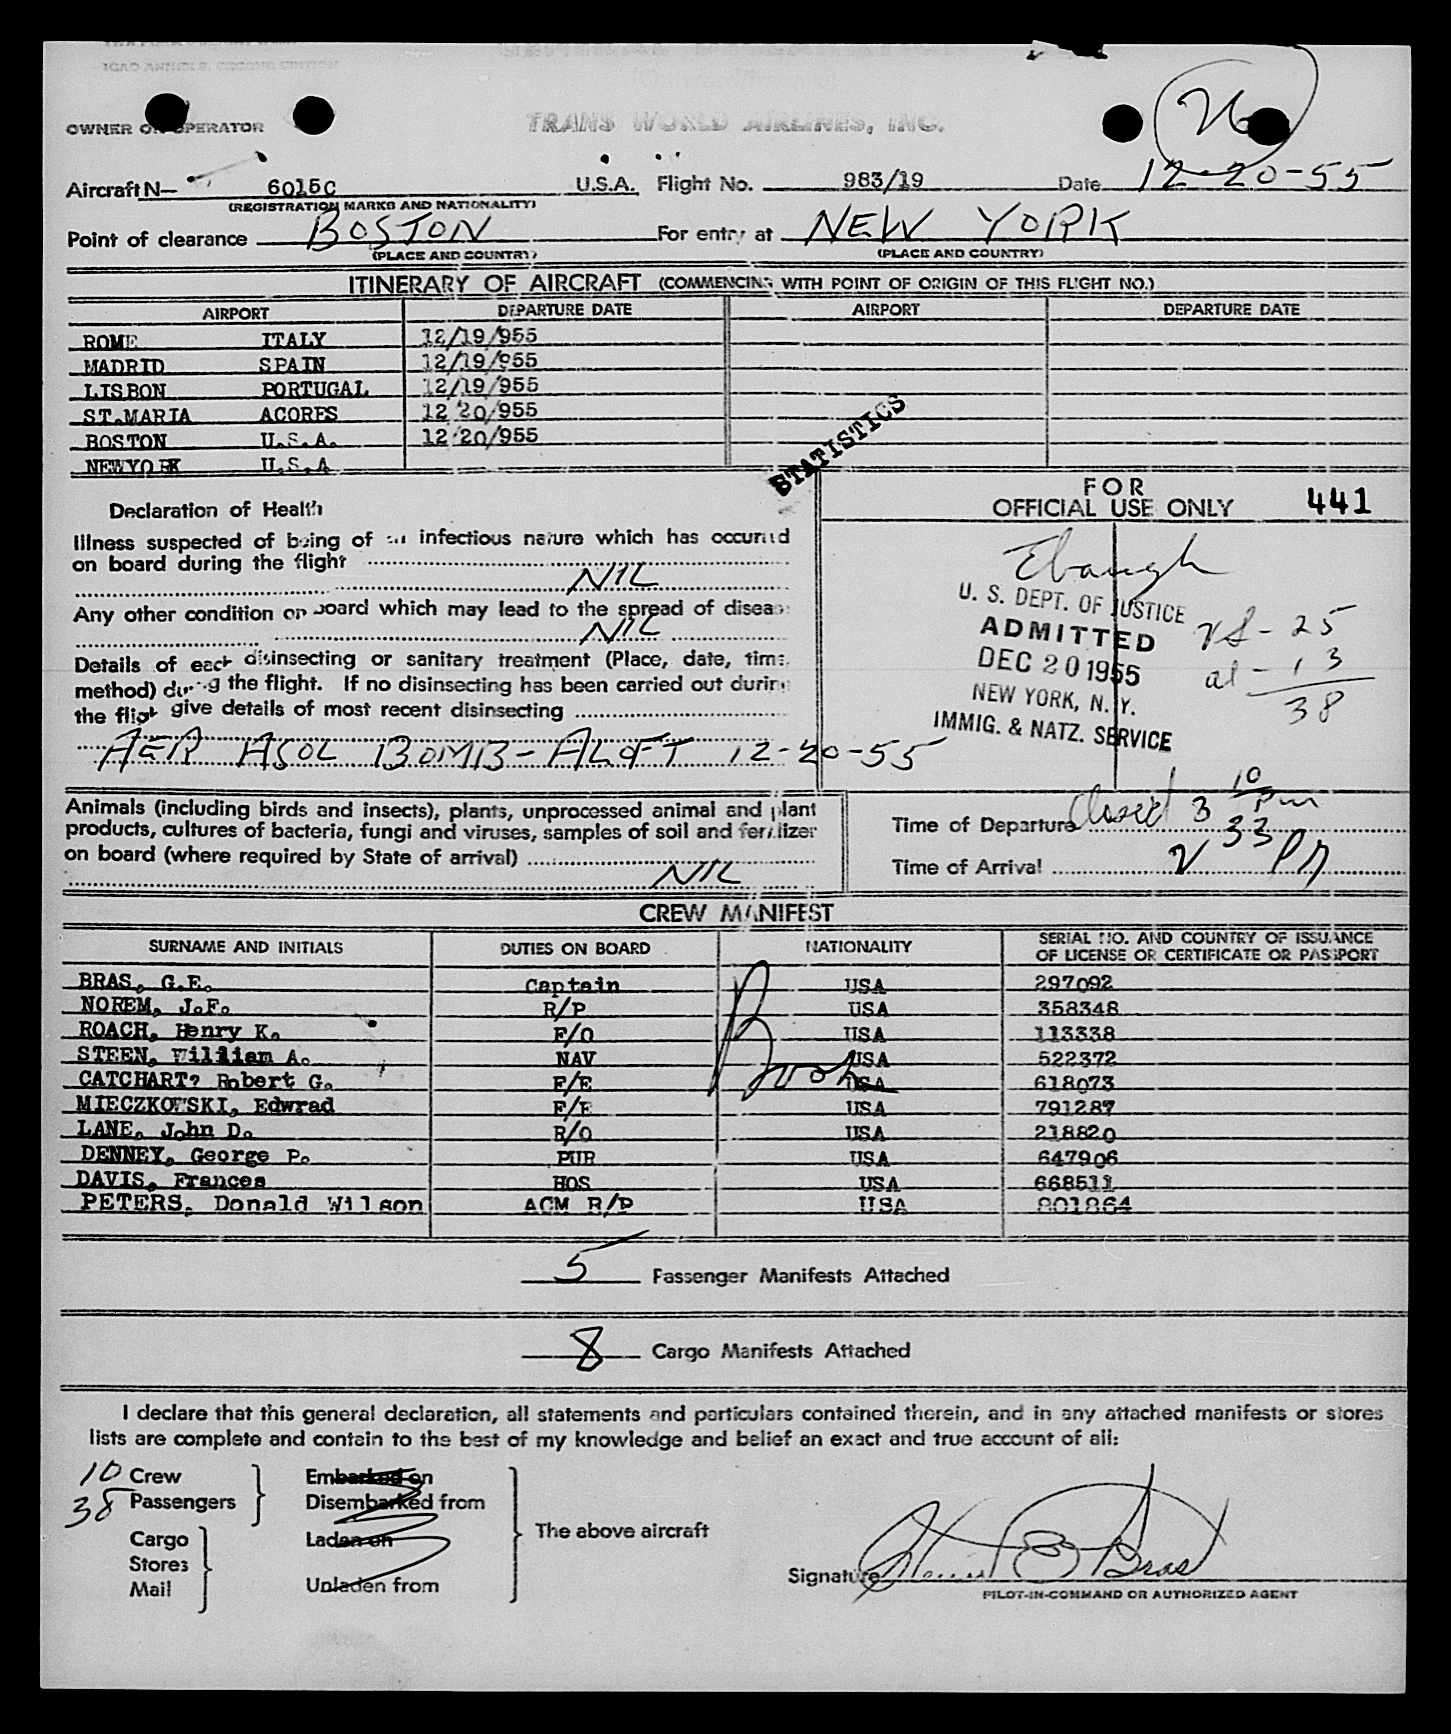 OWNER OR OPERATOR
TRANS WORLD AIRLINES, INC.
26
Aircraft N— 6015C U.S.A. Flight No. 983/19 Date 12-20-55
(REGISTRATION MARKS AND NATIONALITY)
Point of clearance BOSTON For entry at NEW YORK
(PLACE AND COUNTRY) (PLACE AND COUNTRY)
ITINERARY OF AIRCRAFT (COMMENCING WITH POINT OF ORIGIN OF THIS FLIGHT NO.)
AIRPORT DEPARTURE DATE AIRPORT DEPARTURE DATE
ROME ITALY 12/19/955
MADRID SPAIN 12/19/955
LISBON PORTUGAL 12/19/955
ST.MARIA ACORES 12 20/955
BOSTON U.S.A. 12 20/955
NEWYORK U.S.A
STATISTICS
FOR
OFFICIAL USE ONLY 441
Declaration of Health
Illness suspected of being of an infectious nature which has occurred
on board during the flight
NIL
Any other condition on board which may lead to the spread of disease
NIL
Details of each disinsecting or sanitary treatment (Place, date, time,
method) during the flight. If no disinsecting has been carried out during
the flight give details of most recent disinsecting
AER ASOL BOMB - ALOFT 12-20-55
Ebaugh
U. S. DEPT. OF JUSTICE
ADMITTED
DEC 20 1955
NEW YORK, N. Y.
IMMIG. & NATZ. SERVICE
US - 25
al - 13
38
Animals (including birds and insects), plants, unprocessed animal and plant
products, cultures of bacteria, fungi and viruses, samples of soil and fertilizer
on board (where required by State of arrival)
NIL
Time of Departure Closed 3 10 Pm
Time of Arrival 2 33 PM
CREW MANIFEST
SURNAME AND INITIALS DUTIES ON BOARD NATIONALITY SERIAL NO. AND COUNTRY OF ISSUANCE
OF LICENSE OR CERTIFICATE OR PASSPORT
BRAS, G.E. Captain USA 297092
NOREM, J.F. R/P USA 358348
ROACH, Henry K. F/O USA 113338
STEEN, William A. NAV USA 522372
CATCHART? Robert G. F/E USA 618073
MIECZKOWSKI, Edwrad F/E USA 791287
LANE, John D. R/O USA 218820
DENNEY, George P. PUR USA 647906
DAVIS, Frances HOS USA 668511
PETERS, Donald Wilson ACM R/P USA 801864
5 Passenger Manifests Attached
8 Cargo Manifests Attached
I declare that this general declaration, all statements and particulars contained therein, and in any attached manifests or stores
lists are complete and contain to the best of my knowledge and belief an exact and true account of all:
10 Crew Embarked on
38 Passengers Disembarked from
The above aircraft
Cargo Laden on
Stores
Mail Unladen from
Signature
PILOT-IN-COMMAND OR AUTHORIZED AGENT